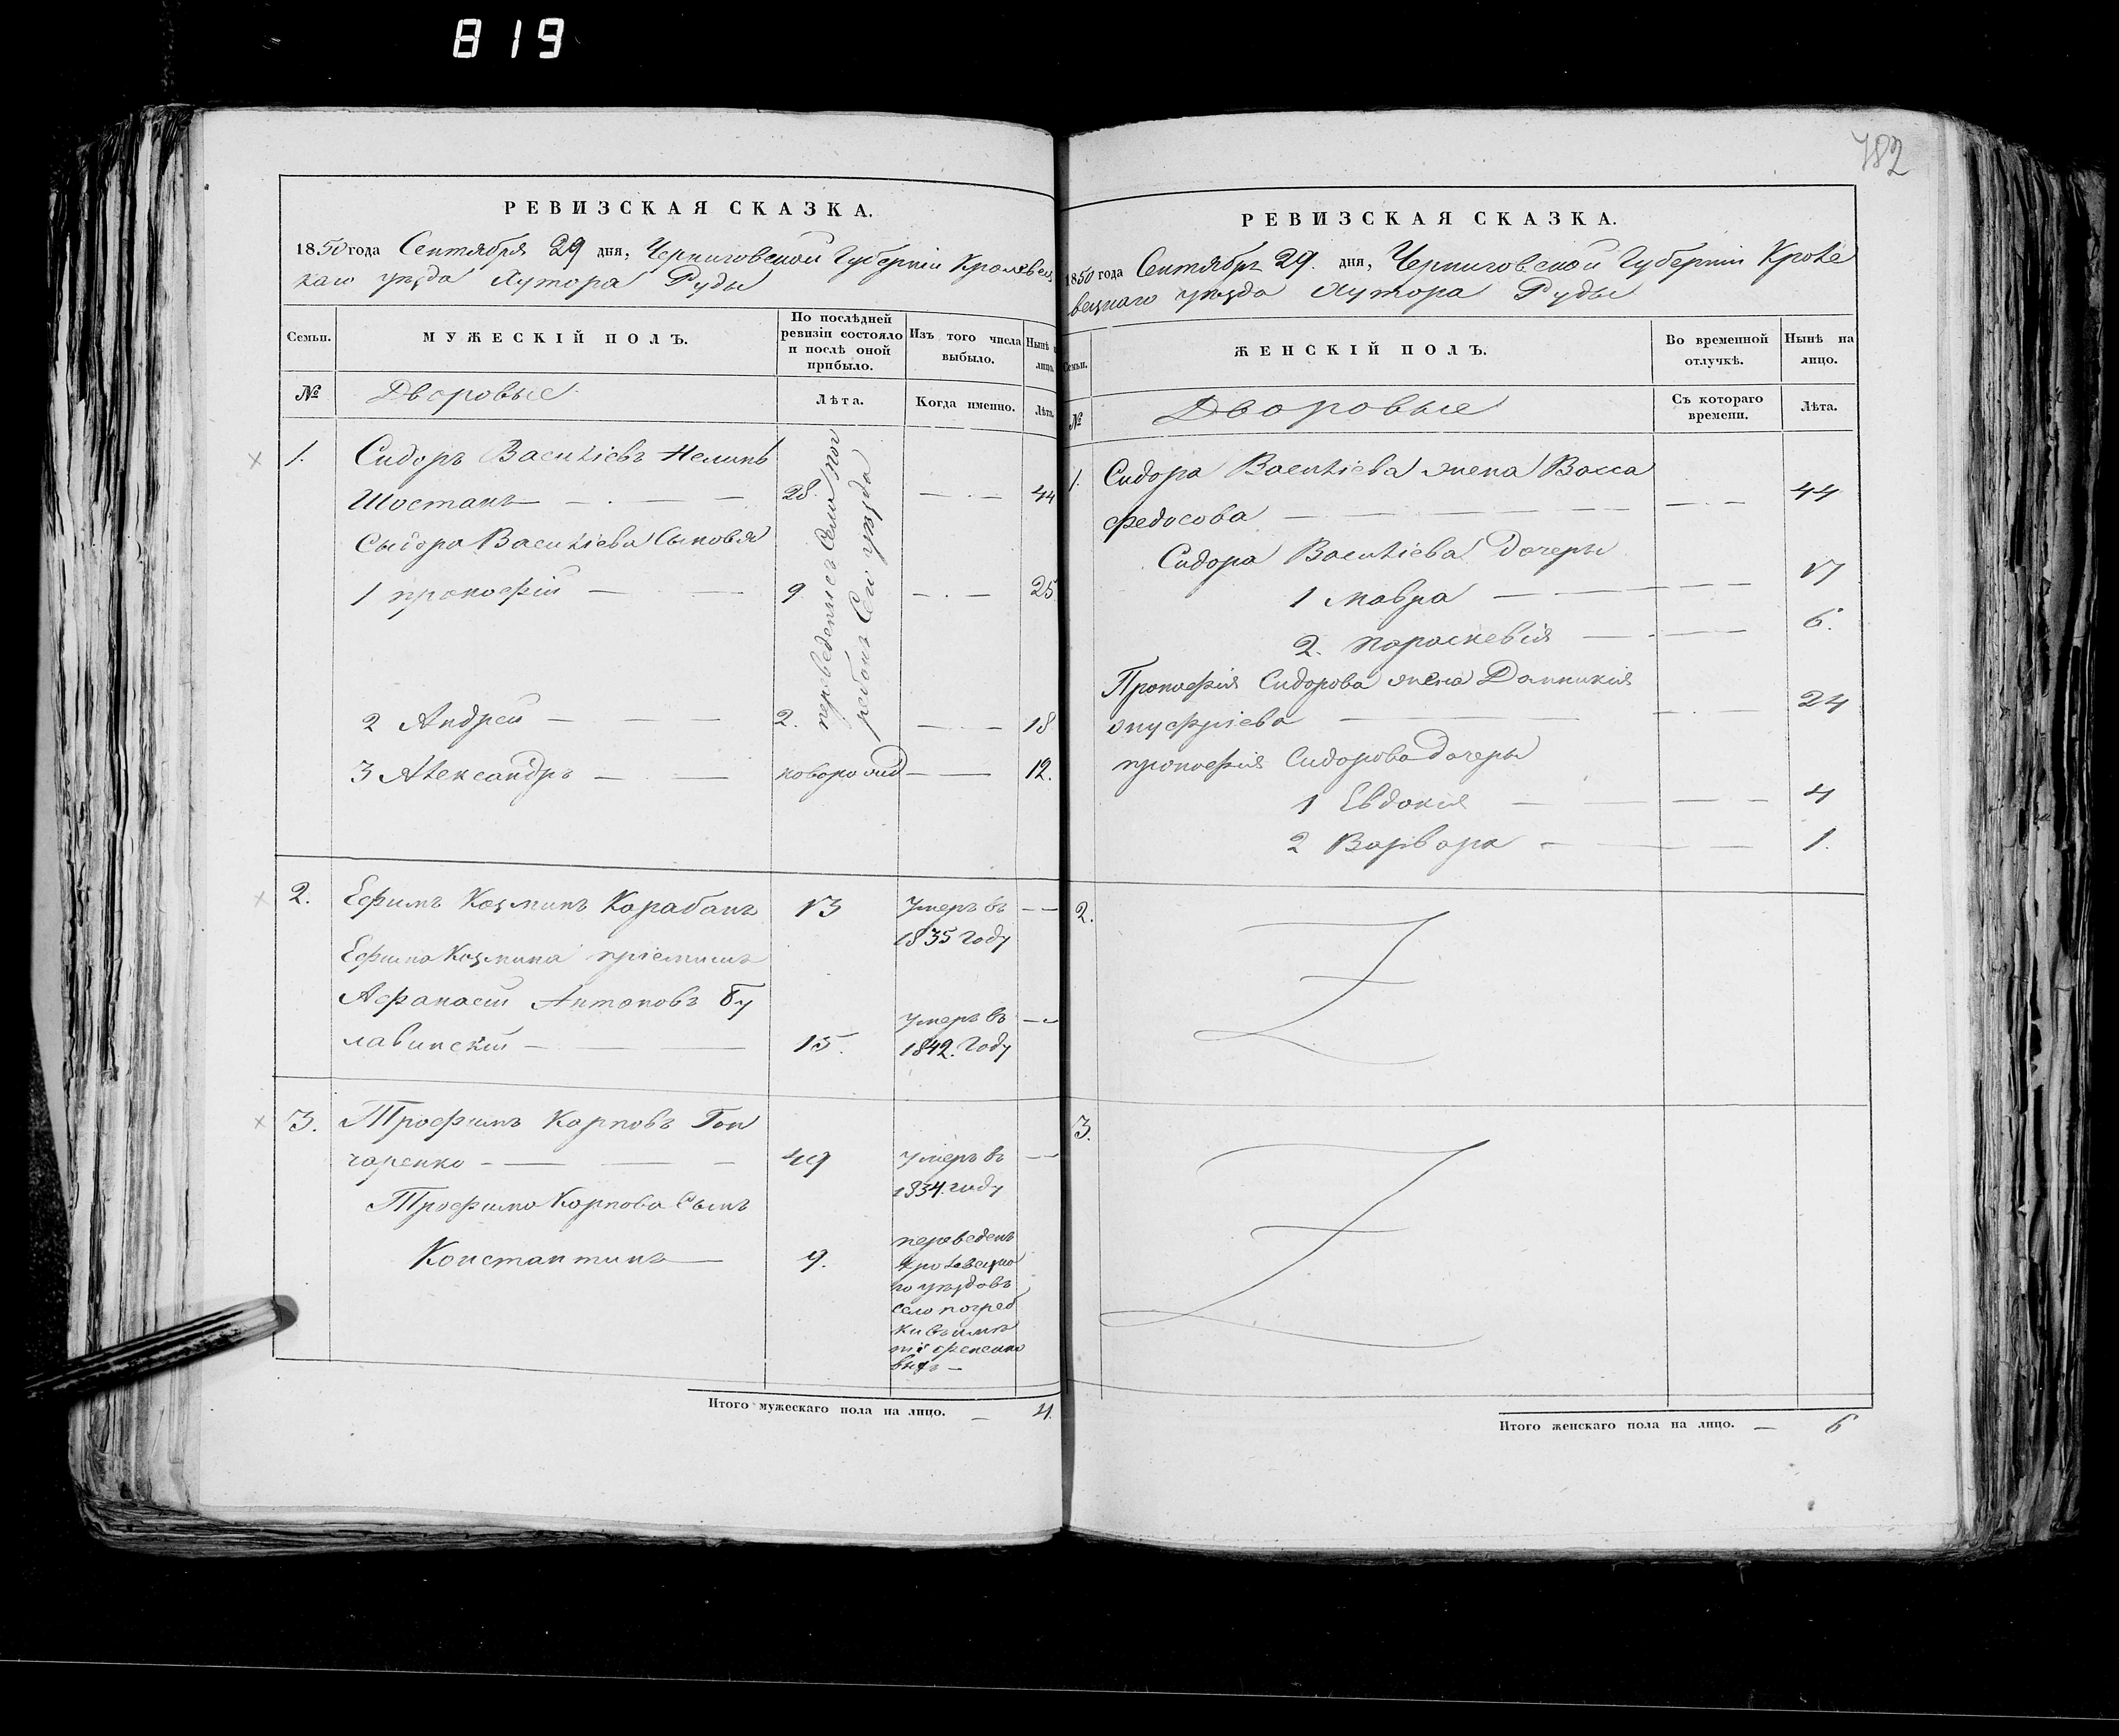 819
782
РЕВИЗСКАЯ СКАЗКА.
1850 года Сентября 29 дня, Черниговской Губерніи Кролевец
каго уѣзда Хутора Руды
Семьи.
МУЖЕСКІЙ ПОЛЪ.
По послѣдней
ревизіи состояло
и послѣ оной
прибыло.
Изъ того числа
выбыло.
Нынѣ н
лицо.
№
Дворовые
Лѣта.
Когда именно.
Лѣта.
1. Сидоръ Василіевъ
Шостакъ 28. 44
Сыдора Василіева Сыновья
1 прокофій 9 25
2 Андрей 2. 18
3 Александръ новорожд 12.
переведенны съ Села пог
ребокъ Сего уѣзда
2. Ефимъ Козминъ Карабанъ 13 Умеръ въ
1835 году
Ефима Козмина пріемышъ
Афанасій Антоновъ Бу
лавинскій 15. Умеръ въ
1842. Году
3. Трофимъ Карповъ Гон
чаренко 49 Умеръ въ
1834. году
Трофима Карпова Сынъ
Константинъ 9. переведенъ
Кролевецка
го уѣзда въ
село погреб
ки въ имѣ
ніе
Итого мужескаго пола на лицо. 4.
РЕВИЗСКАЯ СКАЗКА.
1850 года Сентября 29. дня, Черниговской Губерніи Кроле
вецкаго уѣзда Хутора Руды
Семьи.
ЖЕНСКІЙ ПОЛЪ.
Во временной
отлучкѣ.
Нынѣ на
лицо.
№
Дворовые
Съ котораго
времени.
Лѣта.
1. Сидора Василіева жена Васса
федосова 44
Сидора Василіева дочеры
1 мавра 17
2. параскевія 6.
Прокофія Сидорова жена Домникія
онуфріева 24
прокофія Сидорова дочеры
1 Евдокія 4
2 Варвара 1.
2.
3.
Итого женскаго пола на лицо. 6